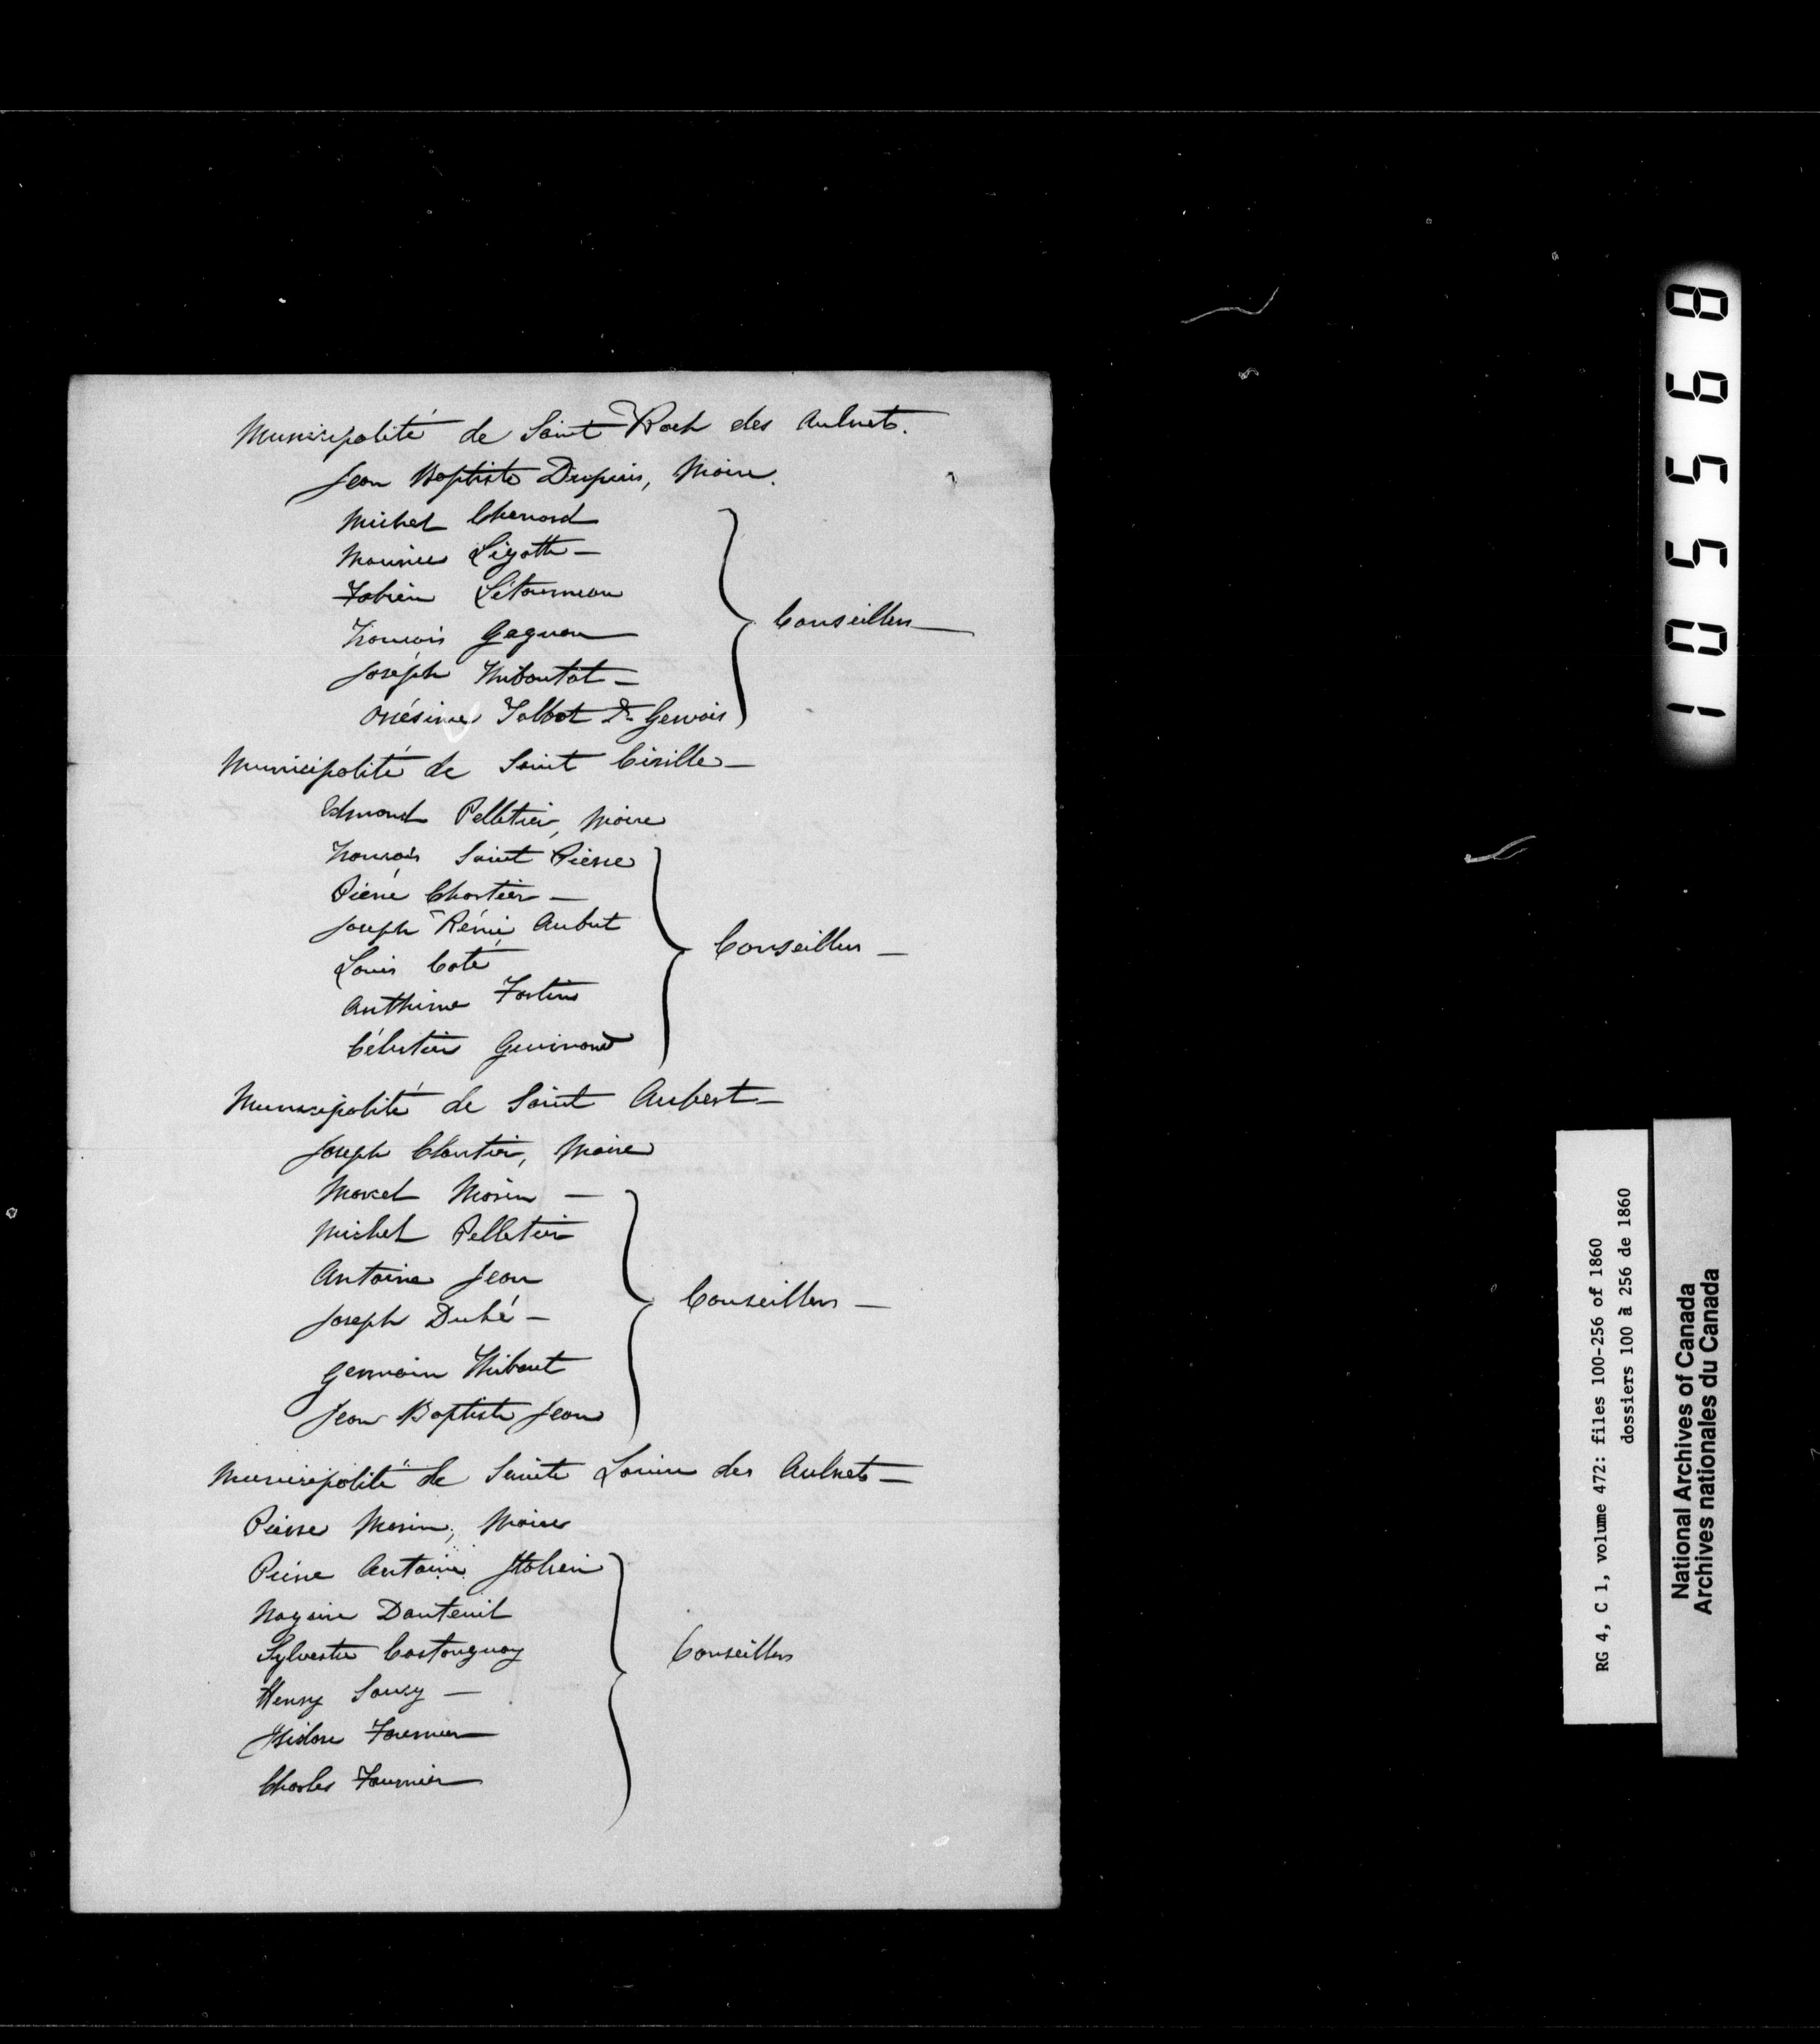 Municipalité de Saint Roch des Aulnets.
Jean Baptiste Dupuis, Maire.
Michel Chenard
Maurice Lizotte —
Fabien Létourneau
François Gagnon
Joseph Thiboutot —
Onésime Talbot dt Gervais
Conseillers
Municipalité de Saint Cirille —
Edmond Pelletier, Maire
François Saint Pierre
Pierre Chartier —
Joseph Rémi Aubut
Louis Coté
Anthime Fortin
Célestin Guimond
Conseillers —
Municipalité de Saint Aubert —
Joseph Cloutier, Maire
Marcel Morin —
Michel Pelletier
Antoine Jean
Joseph Dubé —
Germain Thibaut
Jean Baptiste Jean
Conseillers —
Municipalité de Sainte Louise des Aulnets —
Pierre Morin, Maire
Pierre Antoine
Nazaire Dauteuil
Sylvestre Castonguay
Henry Soucy —
Isidore Fournier
Charles Fournier
Conseillers
105568
RG 4, C 1, volume 472: files 100-256 of 1860
dossiers 100 à 256 de 1860
National Archives of Canada
Archives nationales du Canada